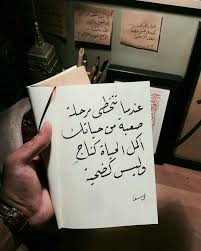 عندما تتخطى مرحلة
صعبة من حياتك
أكمل الحياة كناجٍ
وليس كضحية